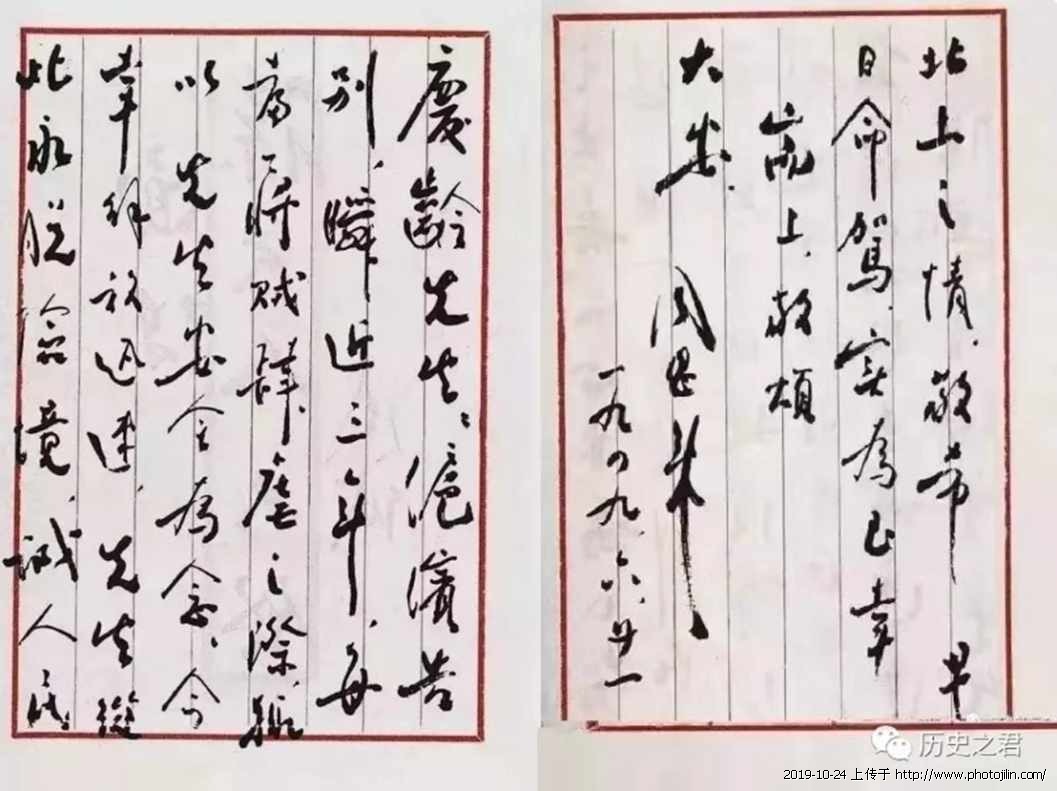 慶齡先生：滬濱告
别，瞬近三年，每
當蔣賊肆虐之際，輒
以先生安全為念，今
幸解放迅速，先生從
此永脱險境，誠人民
北上之情，敬希 早
日命駕，实為至幸
耑上，敬頌
大安。
周恩来
一九四九、六、廿一
历史之君
2019-10-24 上传于 http://www.photojilin.com/